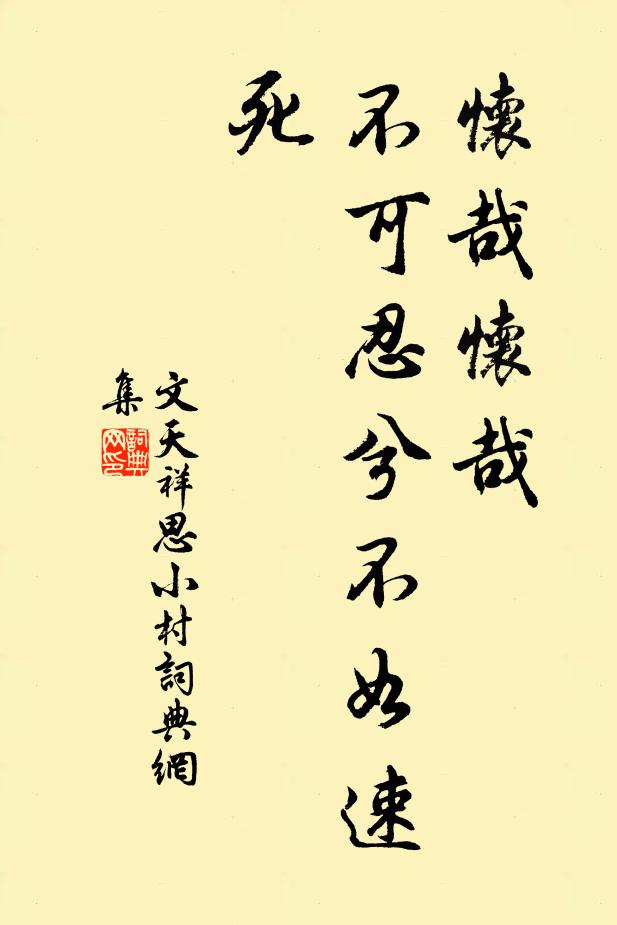 懷哉懷哉
不可忍兮不如速
死
文天祥思小村詞典網
集
詞典
网印